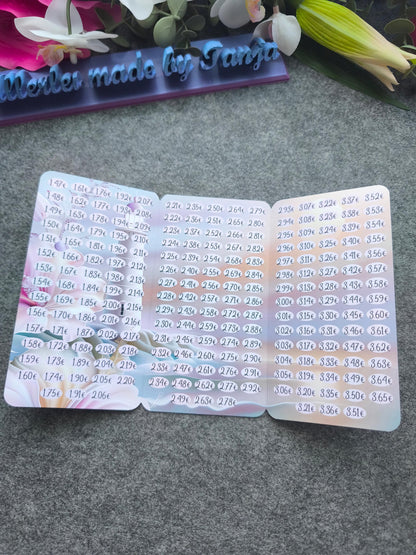 Merlei made by Tanja
1.47€ 1.61€ 1.76€ 1.92€ 2.07€
1.48€ 1.62€ 1.77€ 1.93€ 2.08€
1.49€ 1.63€ 1.78€ 1.94€ 2.09€
1.50€ 1.64€ 1.79€ 1.95€ 2.10€
1.51€ 1.65€ 1.81€ 1.96€ 2.11€
1.52€ 1.66€ 1.82€ 1.97€ 2.12€
1.53€ 1.67€ 1.83€ 1.98€ 2.13€
1.54€ 1.68€ 1.84€ 1.99€ 2.14€
1.55€ 1.69€ 1.85€ 2.00€ 2.15€
1.56€ 1.70€ 1.86€ 2.01€ 2.16€
1.57€ 1.71€ 1.87€ 2.02€ 2.17€
1.58€ 1.72€ 1.88€ 2.03€ 2.18€
1.59€ 1.73€ 1.89€ 2.04€ 2.19€
1.60€ 1.74€ 1.90€ 2.05€ 2.20€
1.75€ 1.91€ 2.06€
2.21€ 2.35€ 2.50€ 2.64€ 2.79€
2.22€ 2.36€ 2.51€ 2.65€ 2.80€
2.23€ 2.37€ 2.52€ 2.66€ 2.81€
2.24€ 2.38€ 2.53€ 2.67€ 2.82€
2.25€ 2.39€ 2.54€ 2.68€ 2.83€
2.26€ 2.40€ 2.55€ 2.69€ 2.84€
2.27€ 2.41€ 2.56€ 2.70€ 2.85€
2.28€ 2.42€ 2.57€ 2.71€ 2.86€
2.29€ 2.43€ 2.58€ 2.72€ 2.87€
2.30€ 2.44€ 2.59€ 2.73€ 2.88€
2.31€ 2.45€ 2.74€ 2.89€
2.32€ 2.46€ 2.60€ 2.75€ 2.90€
2.33€ 2.47€ 2.61€ 2.76€ 2.91€
2.34€ 2.48€ 2.62€ 2.77€ 2.92€
2.49€ 2.63€ 2.78€
2.93€ 3.07€ 3.22€ 3.37€ 3.52€
2.94€ 3.08€ 3.23€ 3.38€ 3.53€
2.95€ 3.09€ 3.24€ 3.39€ 3.54€
2.96€ 3.10€ 3.25€ 3.40€ 3.55€
2.97€ 3.11€ 3.26€ 3.41€ 3.56€
2.98€ 3.12€ 3.27€ 3.42€ 3.57€
2.99€ 3.13€ 3.28€ 3.43€ 3.58€
3.00€ 3.14€ 3.29€ 3.44€ 3.59€
3.01€ 3.15€ 3.30€ 3.45€ 3.60€
3.02€ 3.16€ 3.31€ 3.46€ 3.61€
3.03€ 3.17€ 3.32€ 3.47€ 3.62€
3.04€ 3.18€ 3.33€ 3.48€ 3.63€
3.05€ 3.19€ 3.34€ 3.49€ 3.64€
3.06€ 3.20€ 3.35€ 3.50€ 3.65€
3.21€ 3.36€ 3.51€